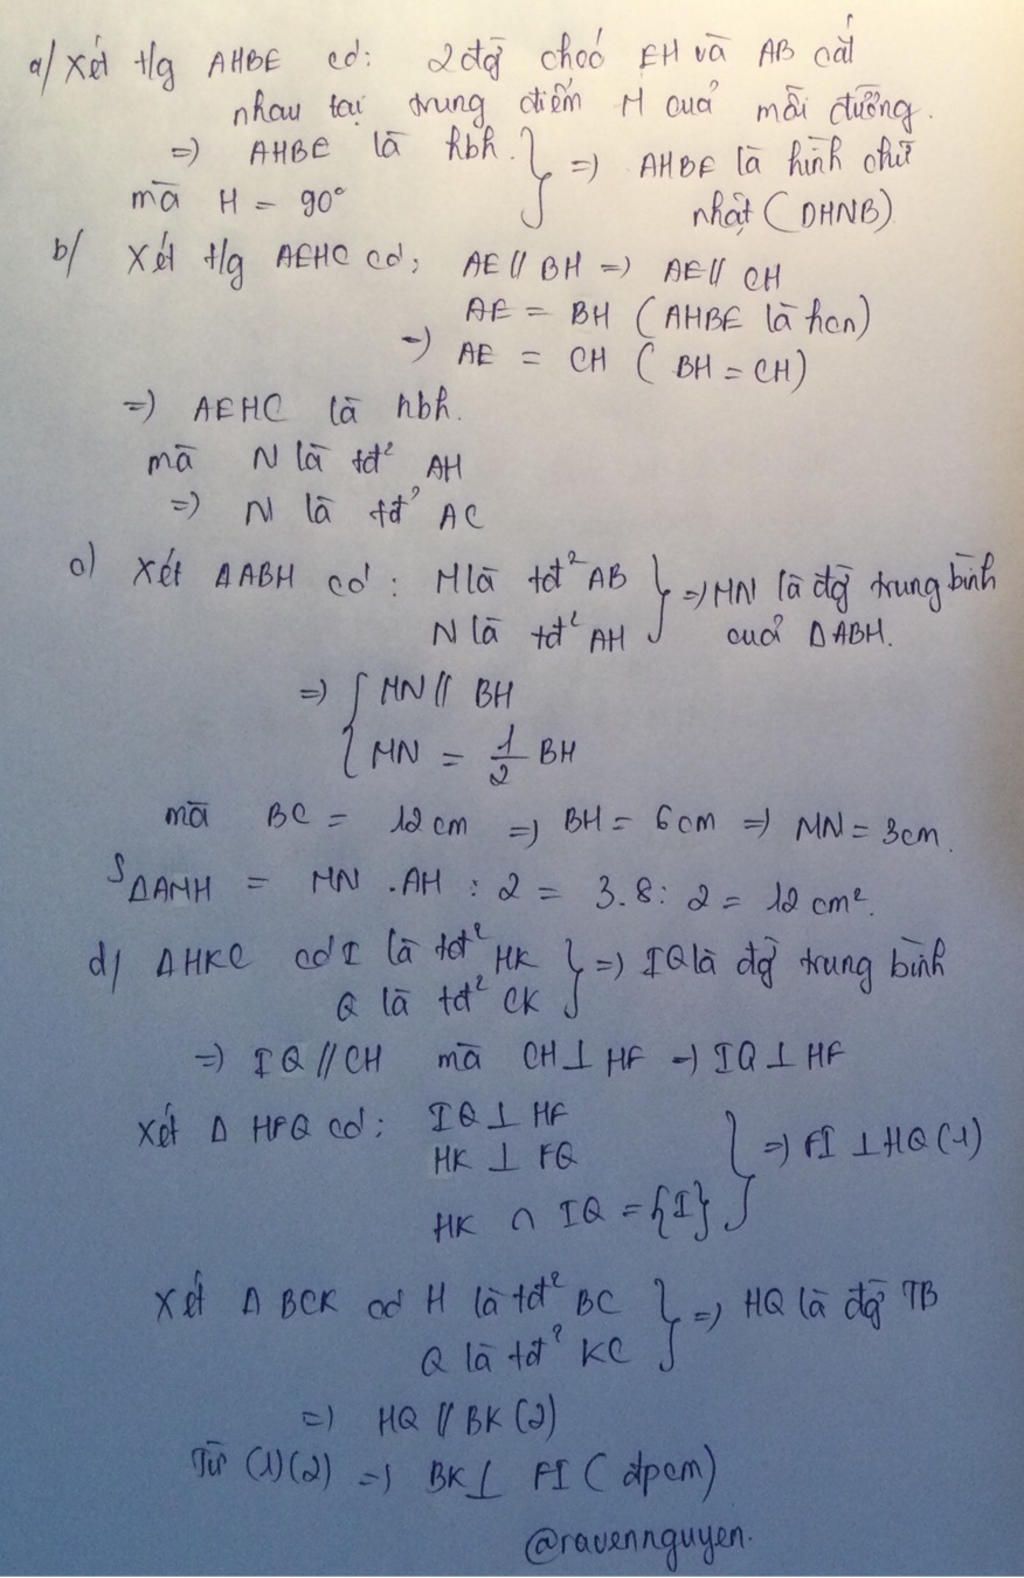 a/ Xét t/g AHBE có: 2 đg̀ chéo EH và AB cắt
nhau tại trung điểm M của mỗi đường.
=> AHBE là hbh. } => AHBE là hình chữ
mà H = 90° nhật (DHNB)
b/ Xét t/g AEHC có; AE // BH => AE // CH
AE = BH (AHBE là hcn)
=> AE = CH ( BH = CH)
=> AEHC là hbh.
mà N là tđ² AH
=> N là tđ² AC
c) Xét ΔABH có : M là tđ² AB } => MN là đg̀ trung bình
N là tđ² AH của ΔABH.
=> { MN // BH
MN = 1/2 BH
mà BC = 12 cm => BH = 6cm => MN = 3cm.
SΔAMH = MN . AH : 2 = 3.8 : 2 = 12 cm².
d/ ΔHKC có I là tđ² HK } => IQ là đg̀ trung bình
Q là tđ² CK
=> IQ // CH mà CH ⊥ HF => IQ ⊥ HF
Xét Δ HFQ có: IQ ⊥ HF
HK ⊥ FQ } => FI ⊥ HQ (1)
HK ∩ IQ = {I}
Xét Δ BCK có H là tđ² BC } => HQ là đg̀ TB
Q là tđ² KC
=> HQ // BK (2)
Từ (1)(2) => BK ⊥ FI (đpcm)
@ravennguyen.